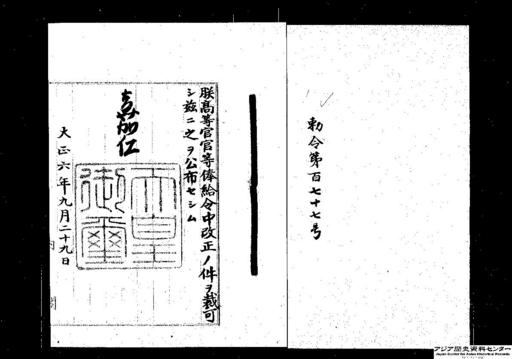 勅令第百七十七号
朕高等官官等俸給令中改正ノ件ヲ裁可
シ茲ニ之ヲ公布セシム
嘉仁
天皇
御璽
大正六年九月二十九日
アジア歴史資料センター
Japan Center for Asian Historical Records